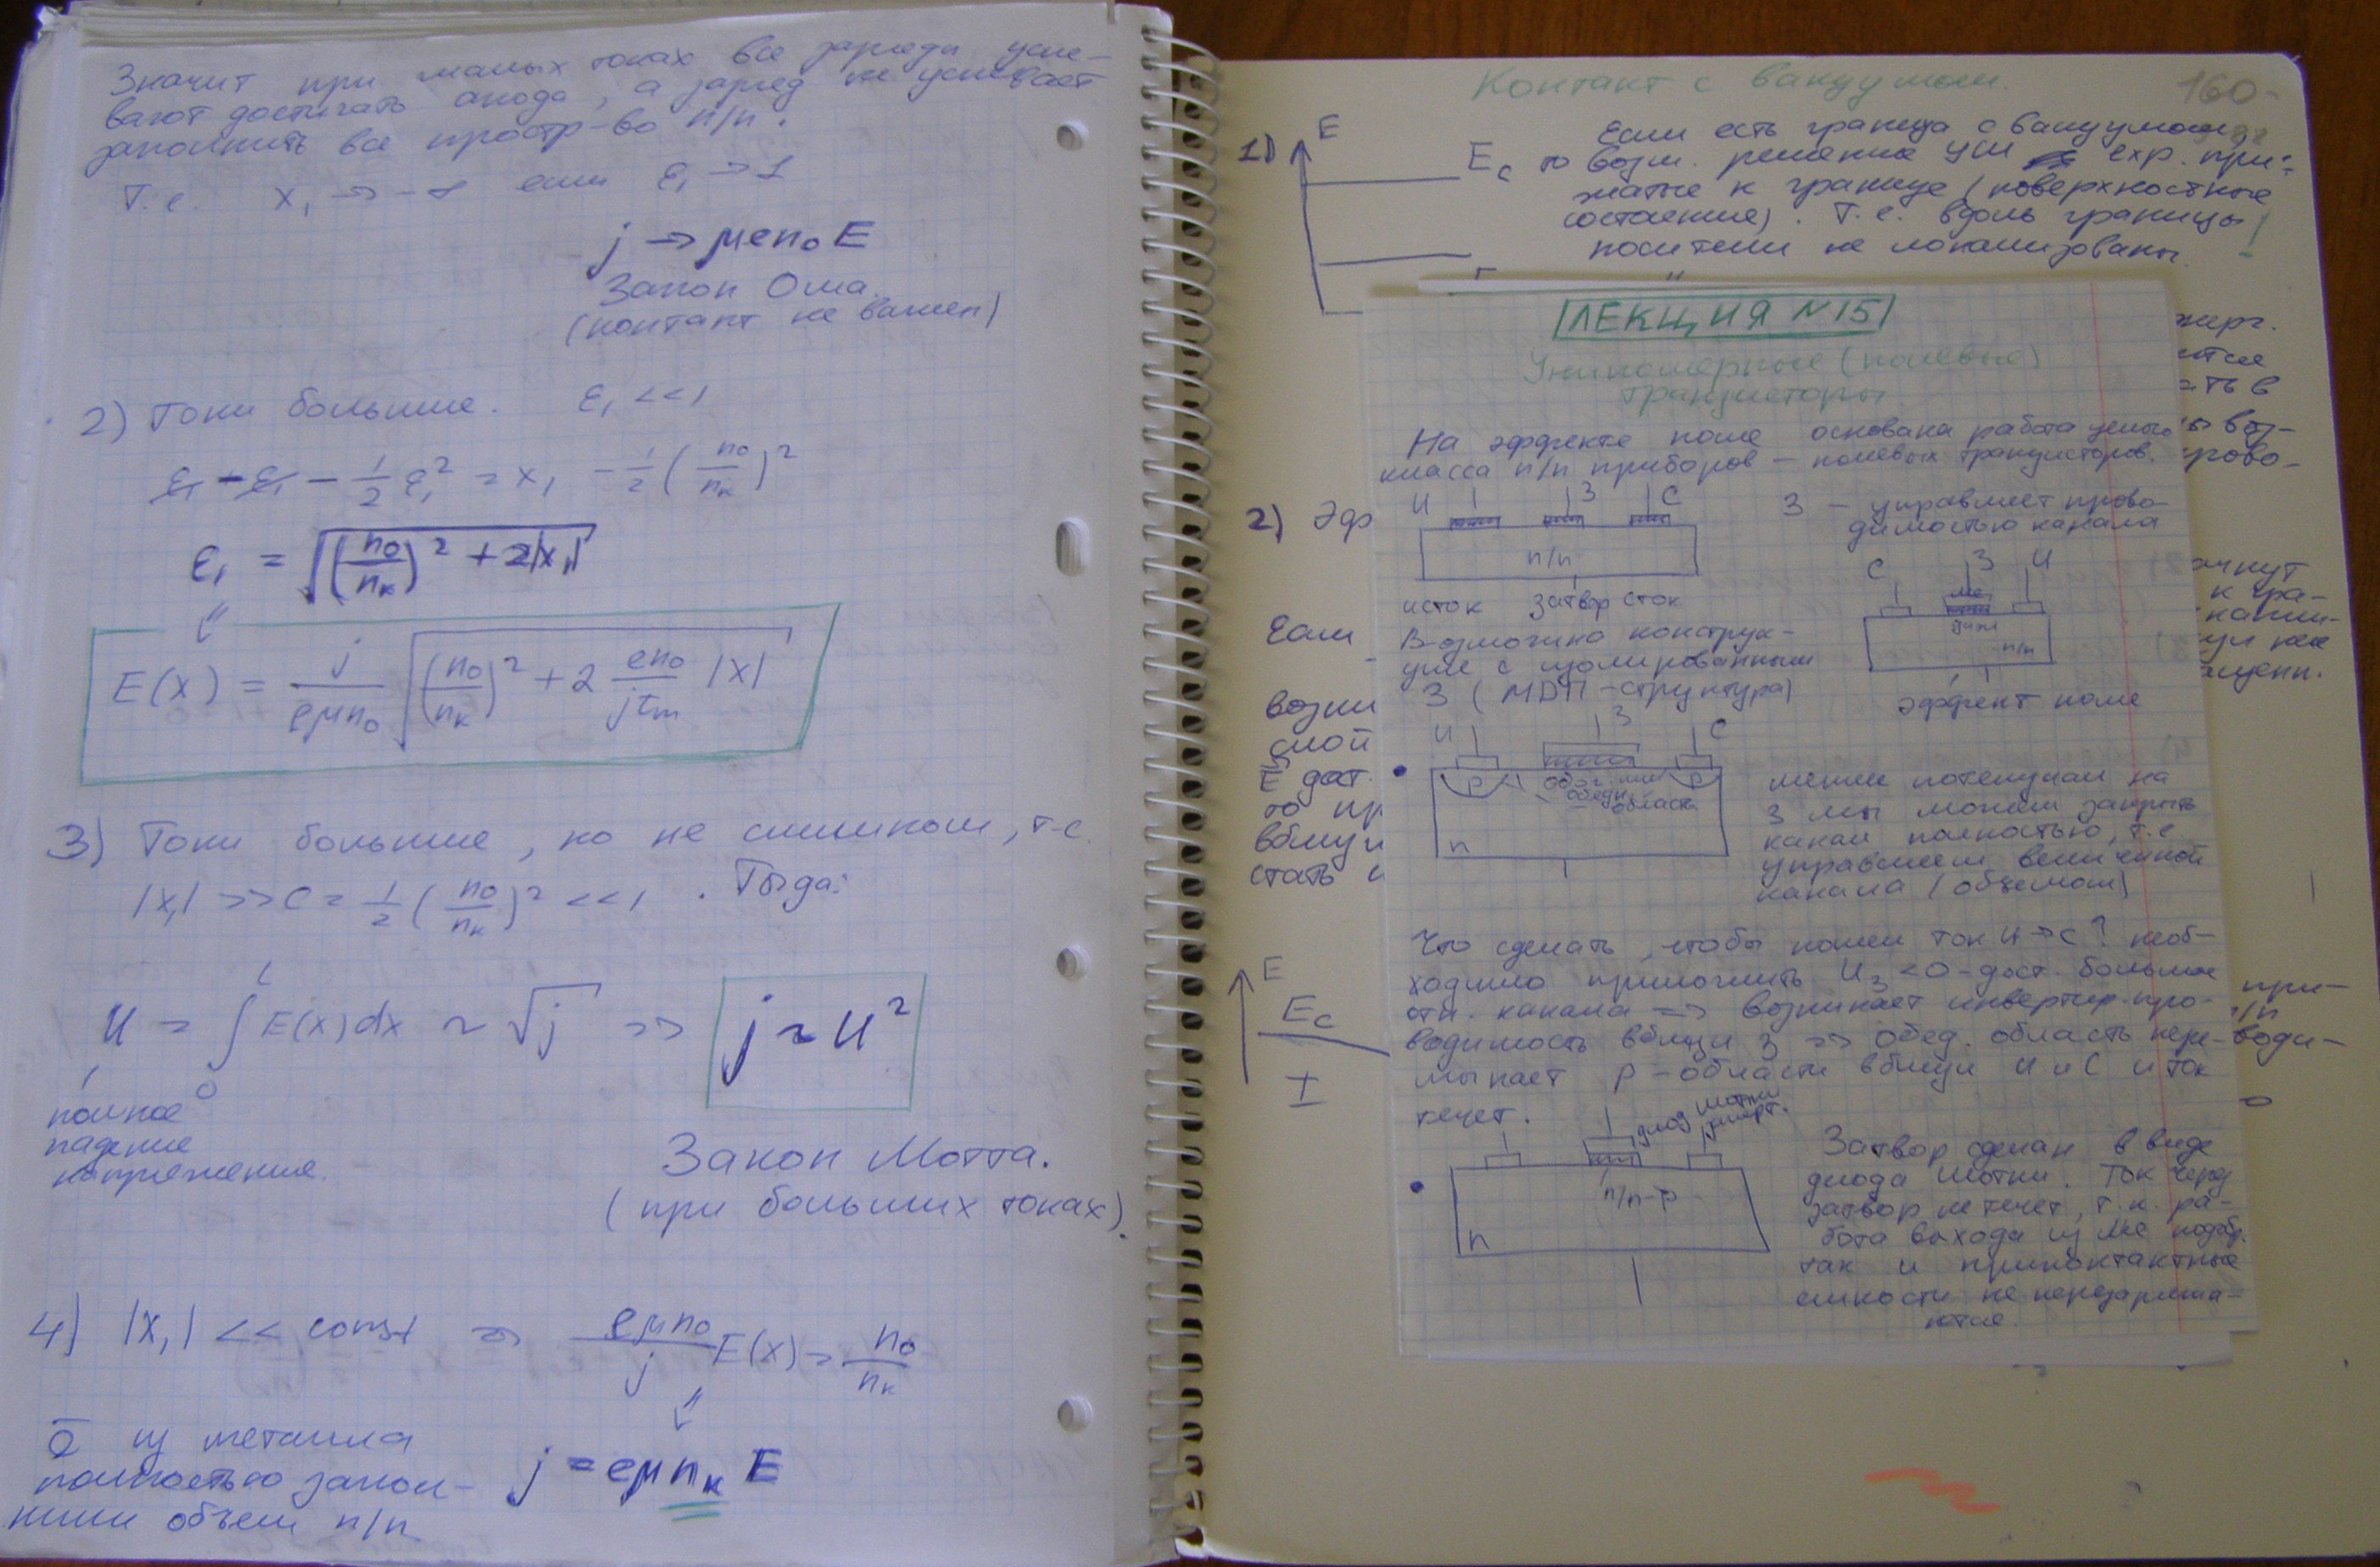 Значит при малых токах все заряды успе-
вают достигать анода, а заряд не успевает
заполнить все простр-во п/п.
Т.е. x₁ → -∞ если ε₁ → 1
j → μen₀E
Закон Ома
(контакт не важен)
2) Токи большие. ε₁ << 1
ε₁ - ε₁ - 1/2 ε₁² = x₁ - 1/2 (n₀/nₖ)²
ε₁ = √((n₀/nₖ)² + 2|x₁|)
⇓
E(x) = j/(eμn₀) √((n₀/nₖ)² + 2 en₀/(jτₘ) |x|)
3) Токи большие, но не слишком, т.е.
|x₁| >> C = 1/2 (n₀/nₖ)² << 1. Тогда:
U = ∫₀ᴸ E(x)dx ~ √j => j ~ U²
полное
падение
напряжения.
Закон Мотта.
(при больших токах).
4) |x₁| << const => eμn₀/j E(x) = n₀/nₖ
⇓
ē из металла
полностью запол-
нили объем п/п
j = eμnₖE
Контакт с вакуумом.
160
1) E
Если есть граница с вакуумом,
Eс то возм. решения УШ с exp. при-
жатые к границе (поверхностные
состояния). Т.е. вдоль границы!
носители не локализованы
2) Эф
Если
возни
слой
E дост.
то пр
вблизи
стать
E
Eс
I
ЛЕКЦИЯ N15
Униполярные (полевые)
транзисторы.
На эффекте поля основана работа целого
класса п/п приборов – полевых транзисторов.
И З С
п/п
исток затвор сток
З – управляет прово-
димостью канала
С З И
Ме
п/п
эффект поля
Возможна конструк-
ция с изолированным
З (МДП-структура)
И З С
p p
обедн.
область
n
меняя потенциал на
З мы можем закрыть
канал полностью, т.е.
управляем величиной
канала (объемом)
Что сделать, чтобы пошел ток И→С? необ-
ходимо приложить U₃<0 – дост. большое
отн. канала => возникает инвертир. про-
водимость вблизи З => обед. область пере-
мыкает p-области вблизи И и С и ток
течет.
диод Шоттки
n
п/п-p
Затвор сделан в виде
диода Шоттки. Ток через
затвор не течет, т.к. ра-
бота выхода из Ме подобр.
так и приконтактные
емкости не перезаряжа-
ются.